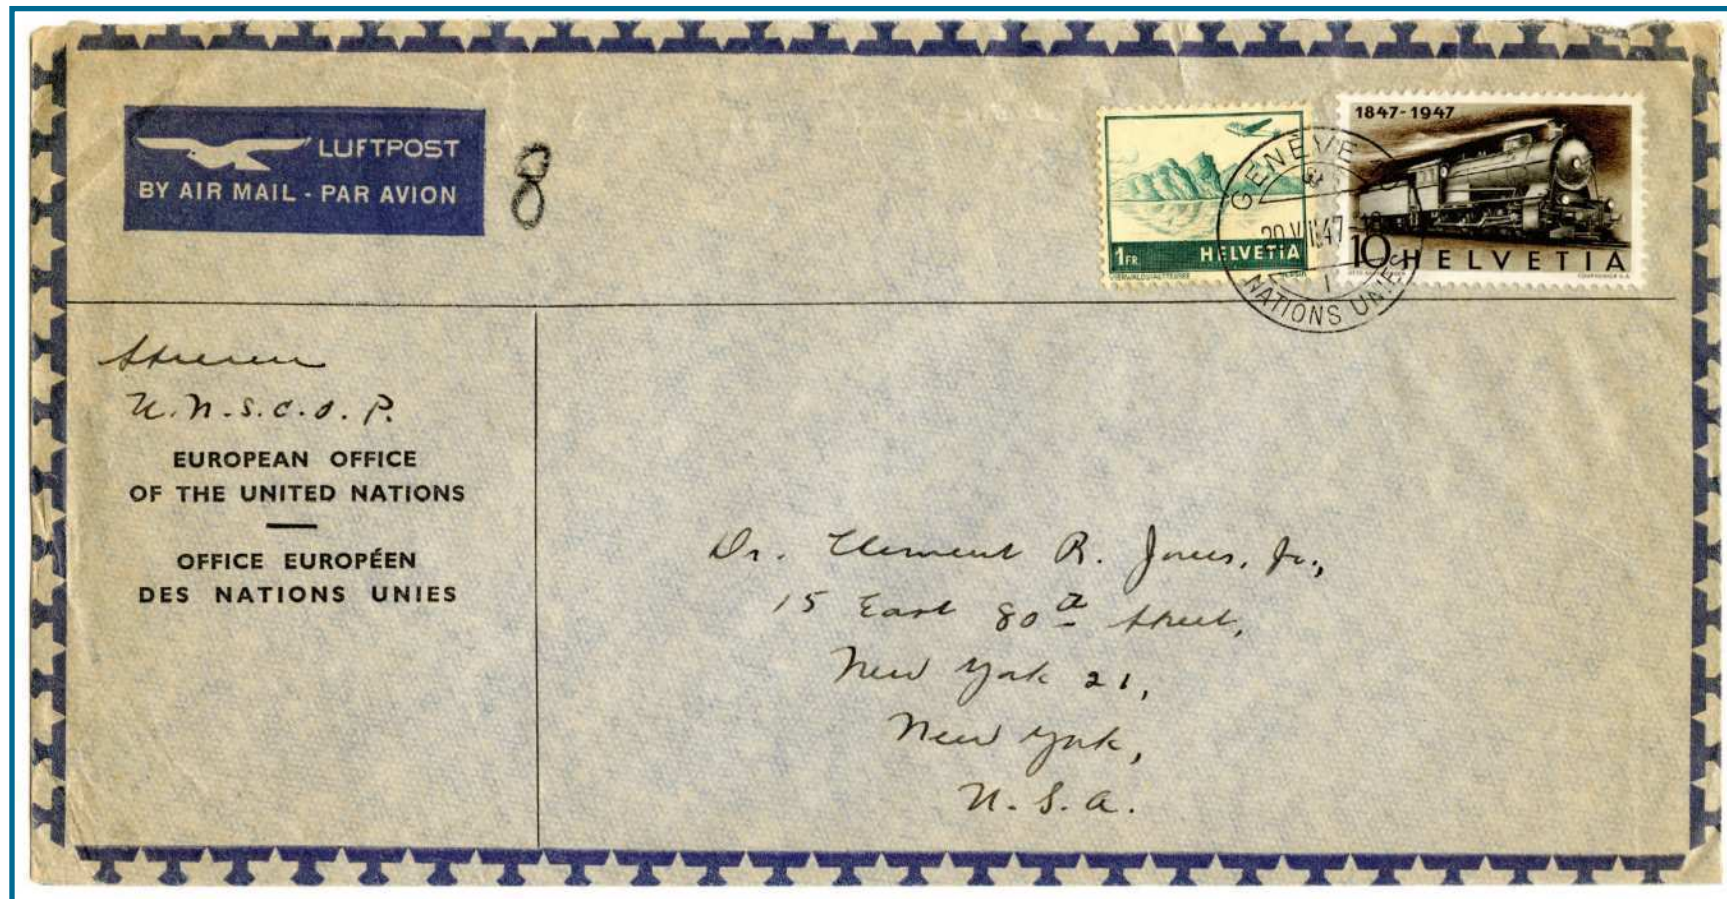 LUFTPOST
BY AIR MAIL - PAR AVION
8
1FR HELVETIA
1847-1947
10 HELVETIA
GENÈVE 10
20.VIII.47-18
1
NATIONS UNIES
U.N.S.C.O.P.
EUROPEAN OFFICE
OF THE UNITED NATIONS
OFFICE EUROPÉEN
DES NATIONS UNIES
Dr. Clement R. Jones, Jr.,
15 East 80th Street,
New York 21,
New York,
U.S.A.